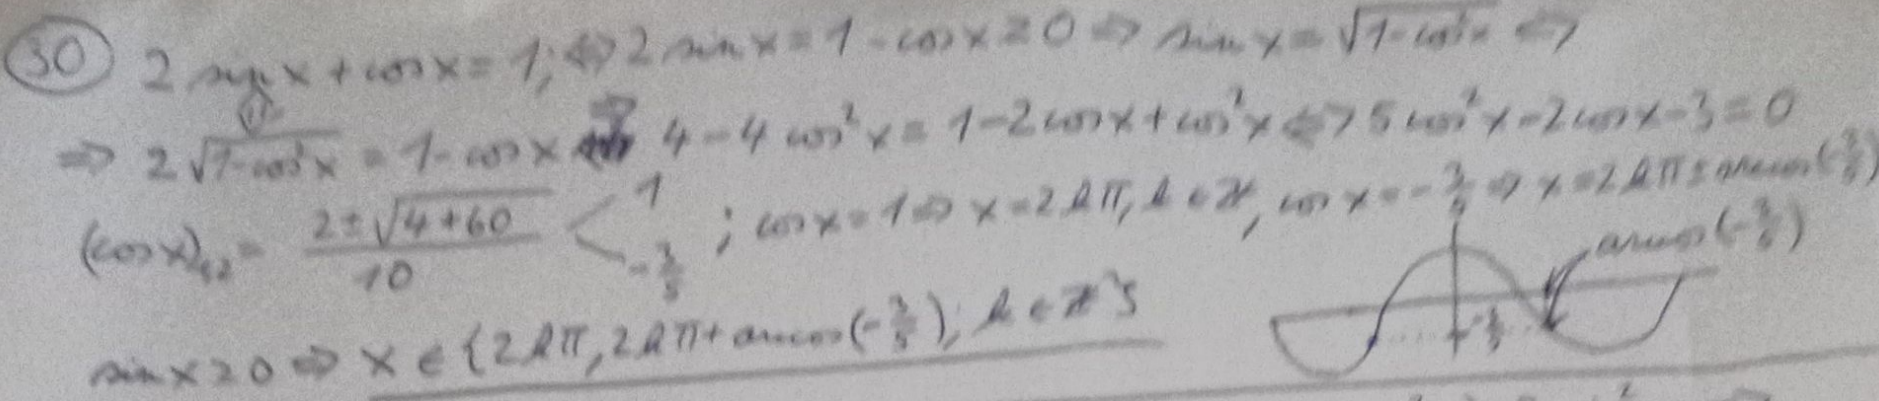 30 2 sin x + cos x = 1; ⇔ 2 sin x = 1 - cos x ≥ 0 ⇒ sin x = √(1-cos²x) ⇔
⇒ 2√(1-cos²x) = 1-cos x ⇒ 4-4cos²x = 1-2cosx+cos²x ⇔ 5cos²x-2cosx-3=0
(cos x)₁,₂ = (2±√(4+60))/10 < 1, -3/5 ; cos x = 1 ⇒ x = 2kπ, k∈Z, cos x = -3/5 ⇒ x = 2kπ ± arccos(-3/5)
arccos(-3/5)
-3/5
sin x ≥ 0 ⇒ x ∈ {2kπ, 2kπ + arccos(-3/5); k∈Z}